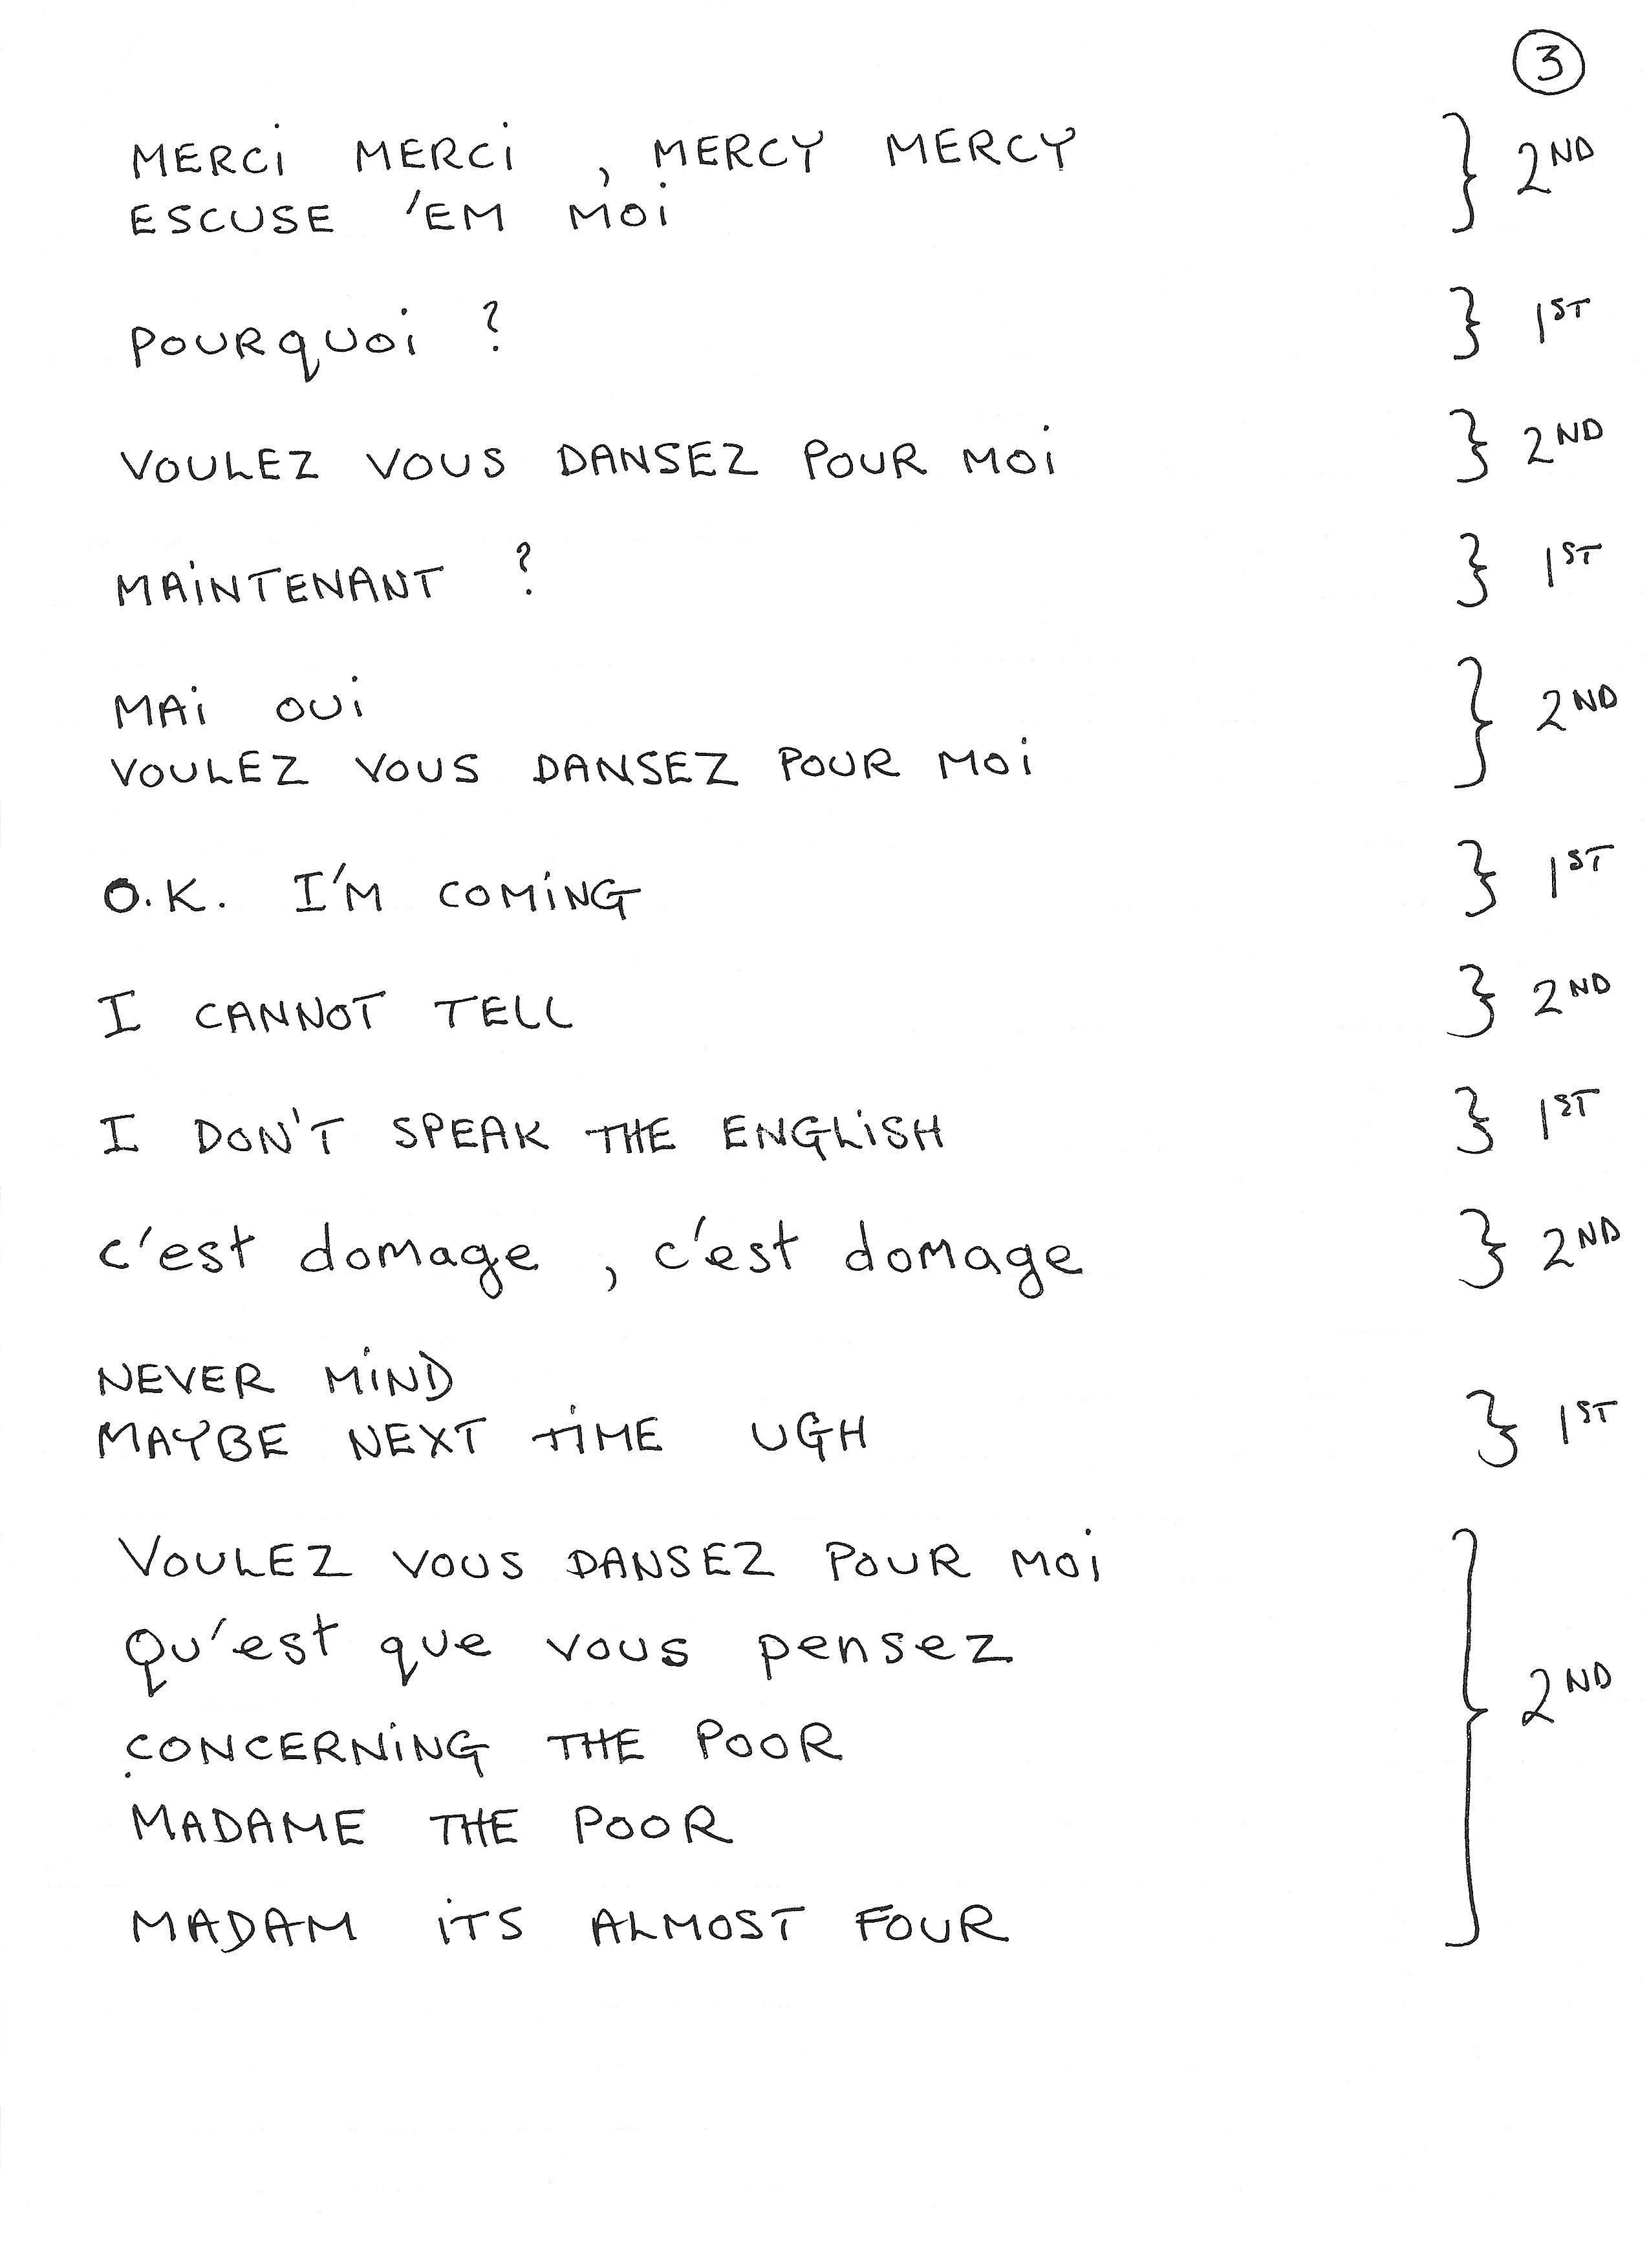 3
MERCi MERCi , MERCY MERCY } 2ND
ESCUSE 'EM MOi
POURQUOi ? } 1ST
VOULEZ VOUS DANSEZ POUR MOi } 2ND
MAiNTENANT ? } 1ST
MAi OUi } 2ND
VOULEZ VOUS DANSEZ POUR MOi
O.K. I'M COMiNG } 1ST
I CANNOT TELL } 2ND
I DON'T SPEAK THE ENGLiSH } 1ST
c'est domage , c'est domage } 2ND
NEVER MiND
MAYBE NEXT TiME UGH } 1ST
VOULEZ VOUS DANSEZ POUR MOi
Qu'est que vous pensez } 2ND
CONCERNiNG THE POOR
MADAME THE POOR
MADAM iTS ALMOST FOUR